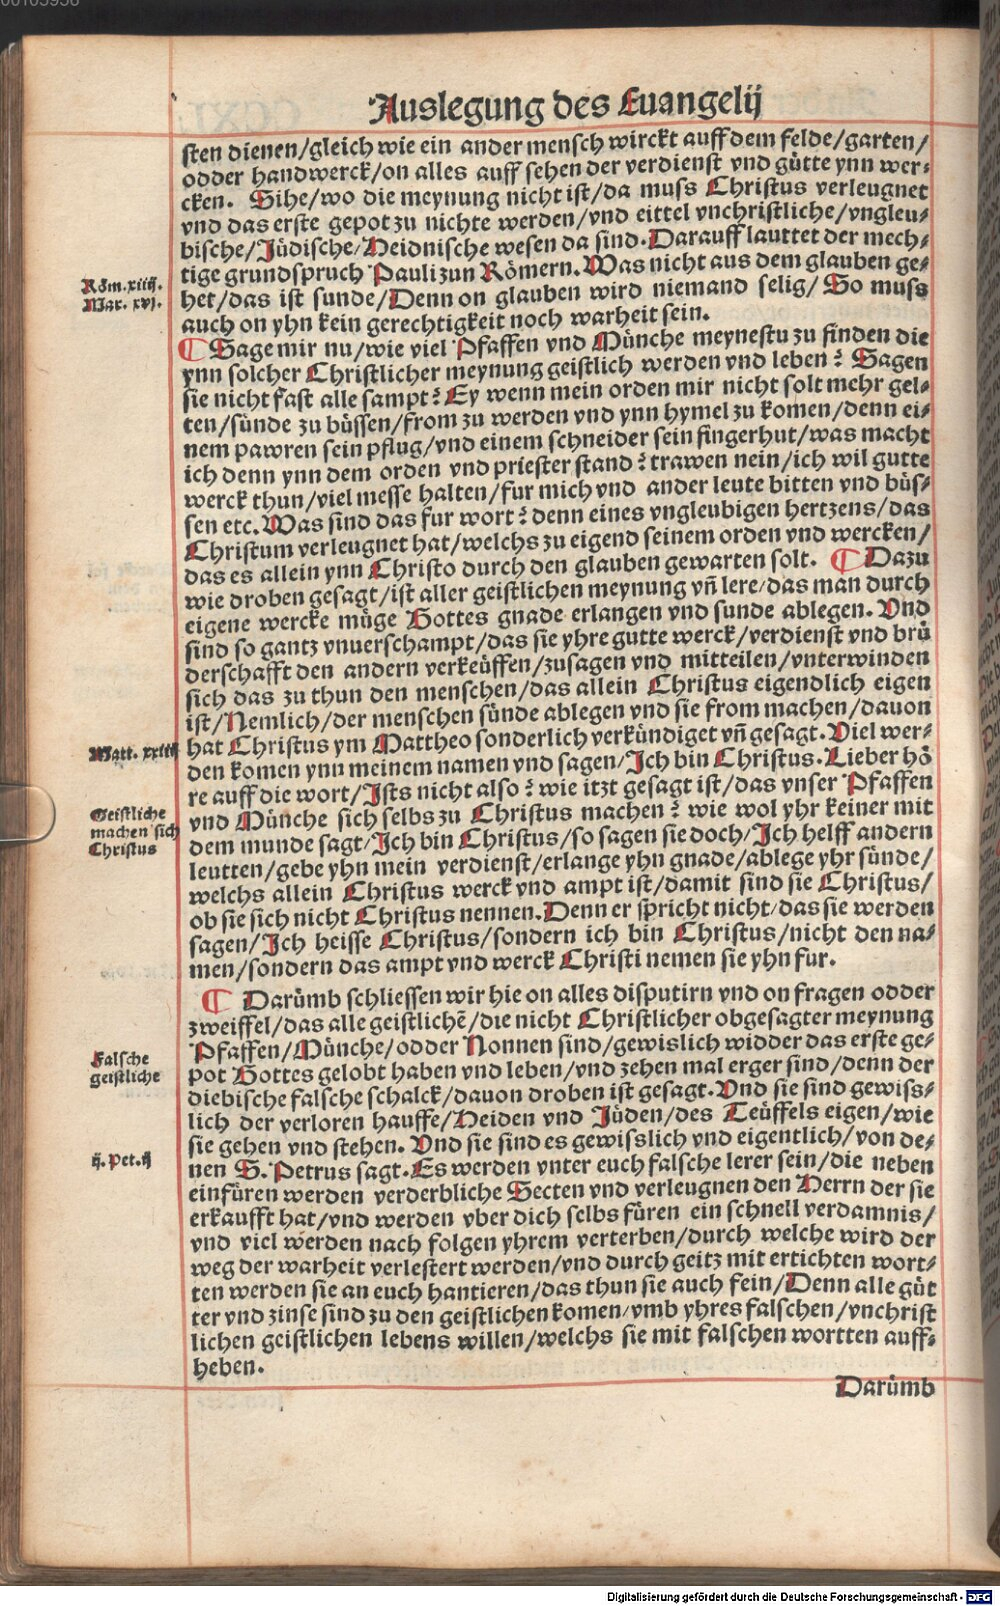 Auslegung des Euangelij
sten dienen/gleich wie ein ander mensch wirckt auff dem felde/garten/
odder handwerck/on alles auff sehen der verdienst vnd gůtte ynn wer⸗
cken. Sihe/wo die meynung nicht ist/da muss Christus verleugnet
vnd das erste gepot zu nichte werden/vnd eittel vnchristliche/vngleu⸗
bische/Jüdische/Heidnische wesen da sind. Darauff lauttet der mech⸗
tige grundspruch Pauli zun Römern. Was nicht aus dem glauben ge⸗
Röm. xiiij.
het/das ist sunde/Denn on glauben wird niemand selig/So muss
Mar. xvj.
auch on yhn kein gerechtigkeit noch warheit sein.
¶ Sage mir nu/wie viel Pfaffen vnd Münche meynestu zu finden die
ynn solcher Christlicher meynung geistlich werden vnd leben? Sagen
sie nicht fast alle sampt? Ey wenn mein orden mir nicht solt mehr gel⸗
ten/sünde zu büssen/from zu werden vnd ynn hymel zu komen/denn ei⸗
nem pawren sein pflug/vnd einem schneider sein fingerhut/was macht
ich denn ynn dem orden vnd priester stand? trawen nein/ich wil gutte
werck thun/viel messe halten/fur mich vnd ander leute bitten vnd büs⸗
sen etc. Was sind das fur wort? denn eines vngleubigen hertzens/das
Christum verleugnet hat/welchs zu eigend seinem orden vnd wercken/
das es allein ynn Christo durch den glauben gewarten solt. ¶ Dazu
wie droben gesagt/ist aller geistlichen meynung vñ lere/das man durch
eigene wercke müge Gottes gnade erlangen vnd sunde ablegen. Vnd
sind so gantz vnuerschampt/das sie yhre gutte werck/verdienst vnd brü
derschafft den andern verkeüffen/zusagen vnd mitteilen/vnterwinden
sich das zu thun den menschen/das allein Christus eigendlich eigen
ist/Nemlich/der menschen sünde ablegen vnd sie from machen/dauon
hat Christus ym Mattheo sonderlich verkündiget vñ gesagt. Viel wer⸗
Matt. xxiiij
den komen ynn meinem namen vnd sagen/Ich bin Christus. Lieber hö
re auff die wort/Ists nicht also? wie itzt gesagt ist/das vnser Pfaffen
vnd Münche sich selbs zu Christus machen? wie wol yhr keiner mit
Geistliche
machen sich
Christus
dem munde sagt/Ich bin Christus/so sagen sie doch/Ich helff andern
leutten/gebe yhn mein verdienst/erlange yhn gnade/ablege yhr sünde/
welchs allein Christus werck vnd ampt ist/damit sind sie Christus/
ob sie sich nicht Christus nennen. Denn er spricht nicht/das sie werden
sagen/Ich heisse Christus/sondern ich bin Christus/nicht den na⸗
men/sondern das ampt vnd werck Christi nemen sie yhn fur.
¶ Darümb schliessen wir hie on alles disputirn vnd on fragen odder
zweiffel/das alle geistlichẽ/die nicht Christlicher obgesagter meynung
Pfaffen/Münche/odder Nonnen sind/gewislich widder das erste ge⸗
Falsche
geistliche
pot Gottes gelobt haben vnd leben/vnd zehen mal erger sind/denn der
diebische falsche schalck/dauon droben ist gesagt. Vnd sie sind gewiss⸗
lich der verloren hauffe/Heiden vnd Jüden/des Teüffels eigen/wie
sie gehen vnd stehen. Vnd sie sind es gewisslich vnd eigentlich/von de⸗
nen S. Petrus sagt. Es werden vnter euch falsche lerer sein/die neben
ij. Pet. ij
einfüren werden verderbliche Secten vnd verleugnen den Herrn der sie
erkaufft hat/vnd werden vber dich selbs füren ein schnell verdamnis/
vnd viel werden nach folgen yhrem verterben/durch welche wird der
weg der warheit verlestert werden/vnd durch geitz mit ertichten wort⸗
ten werden sie an euch hantieren/das thun sie auch fein/Denn alle güt
ter vnd zinse sind zu den geistlichen komen/vmb yhres falschen/vnchrist
lichen geistlichen lebens willen/welchs sie mit falschen wortten auff⸗
heben.
Darümb
Digitalisierung gefördert durch die Deutsche Forschungsgemeinschaft - DFG